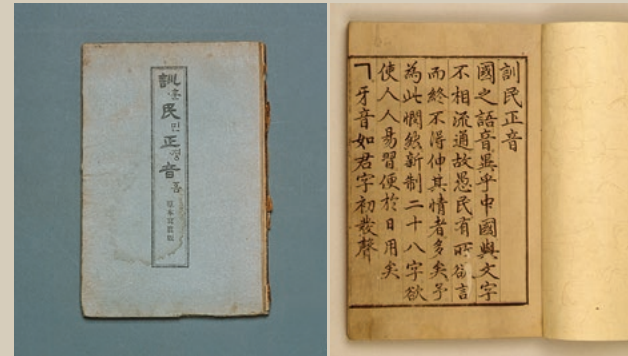 訓民민正音
原本寫眞版
訓民正音
國之語音異乎中國與文字
不相流通故愚民有所欲言
而終不得伸其情者多矣予
為此憫然新制二十八字欲
使人人易習便於日用矣
ㄱ牙音如君字初發聲